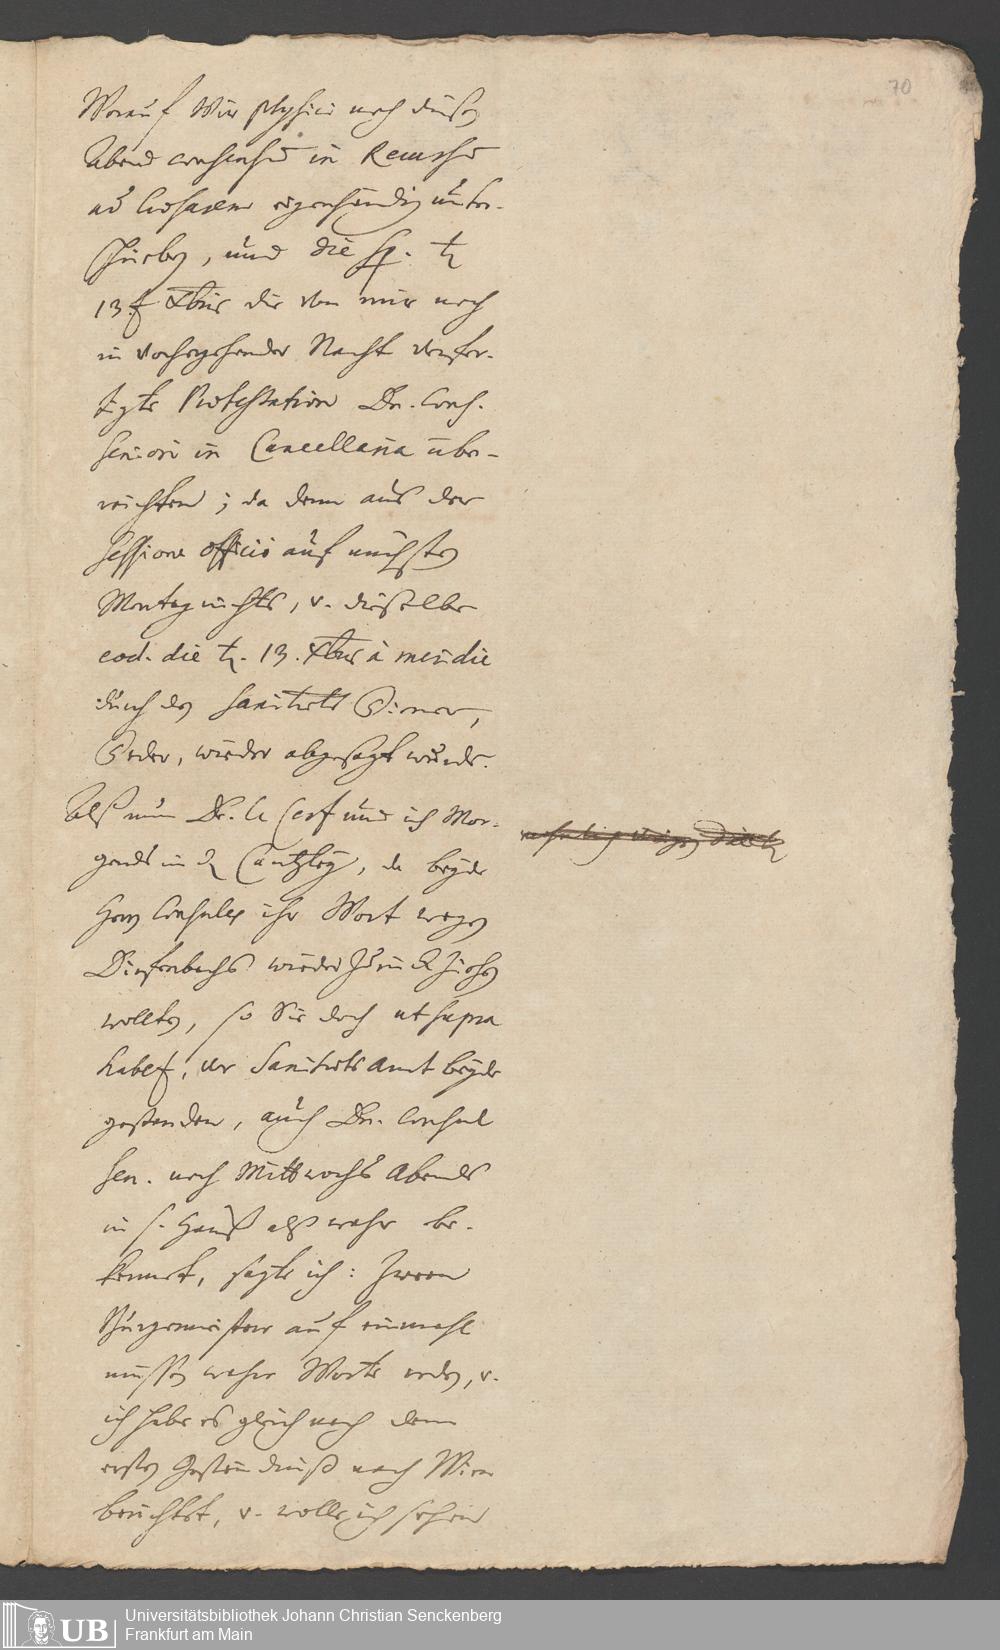 70
Worauf Wir physici noch diesen
Abend consensum in
ad eigenhändig unter-
schrieben, und die ♄
13t Xbris die von mir noch
in vorhergehender Nacht verfer-
tigte Protestation Dn. Cons.
Seniori in Cancellaria über-
reichten; da denn aus der
Sessione officii auf nächsten
Montag nichts, u. dieselbe
eod. die ♄. 13. Xbris à meridie
durch den Sanitäts Diener,
wieder abgesagt wurde.
Alß nun Dr. le Cerf und ich Mor-
gends in d Cantzley, da beyde
Herrn Consules ihr Wort wegen
Diefenbachs wieder zurück ziehen
wollten, so Sie doch ut supra
habet, vor Sanitäts Amt beyde
gestanden, auch Dn. Consul
Sen. noch Mittwochs Abends
in s. Hauß alß wahr be-
kennet, sagte ich: Zween
Bürgermeister auf einmahl
müssen wahre Worte reden, u.
ich habe es gleich nach dem
ersten Geständniß nach Wien
berichtet, u. wolle ich sehen
Universitätsbibliothek Johann Christian Senckenberg
Frankfurt am Main
UB